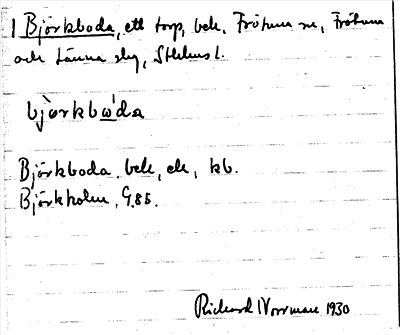 1 Björkboda, ett torp, bek. Frötuna sn, Frötuna
och Länna skg, Sthlms l.
bjòrkbὼda
Björkboda bek, ek, kb.
Björkholm, G.85.
Richard Norrman 1930